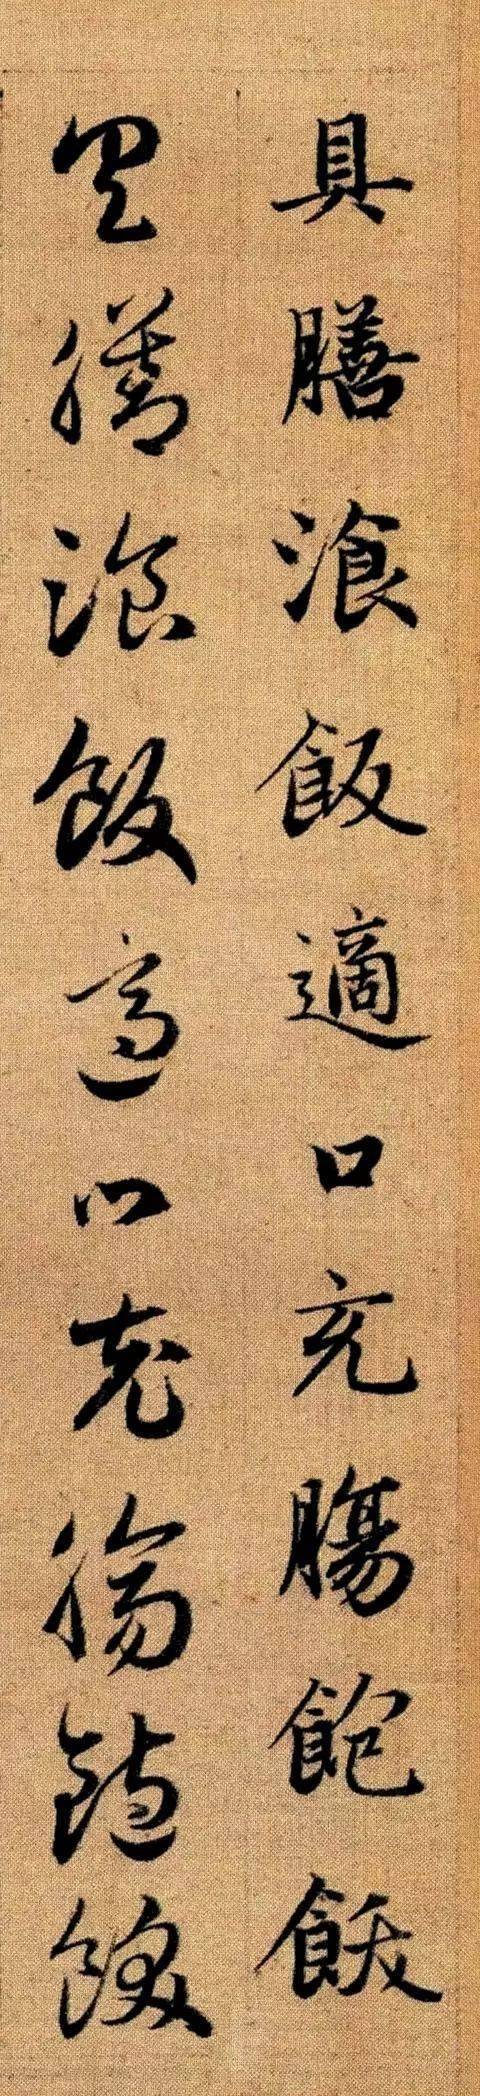 具膳湌飯適口充腸飽飫
具膳湌飯適口充腸飽飫